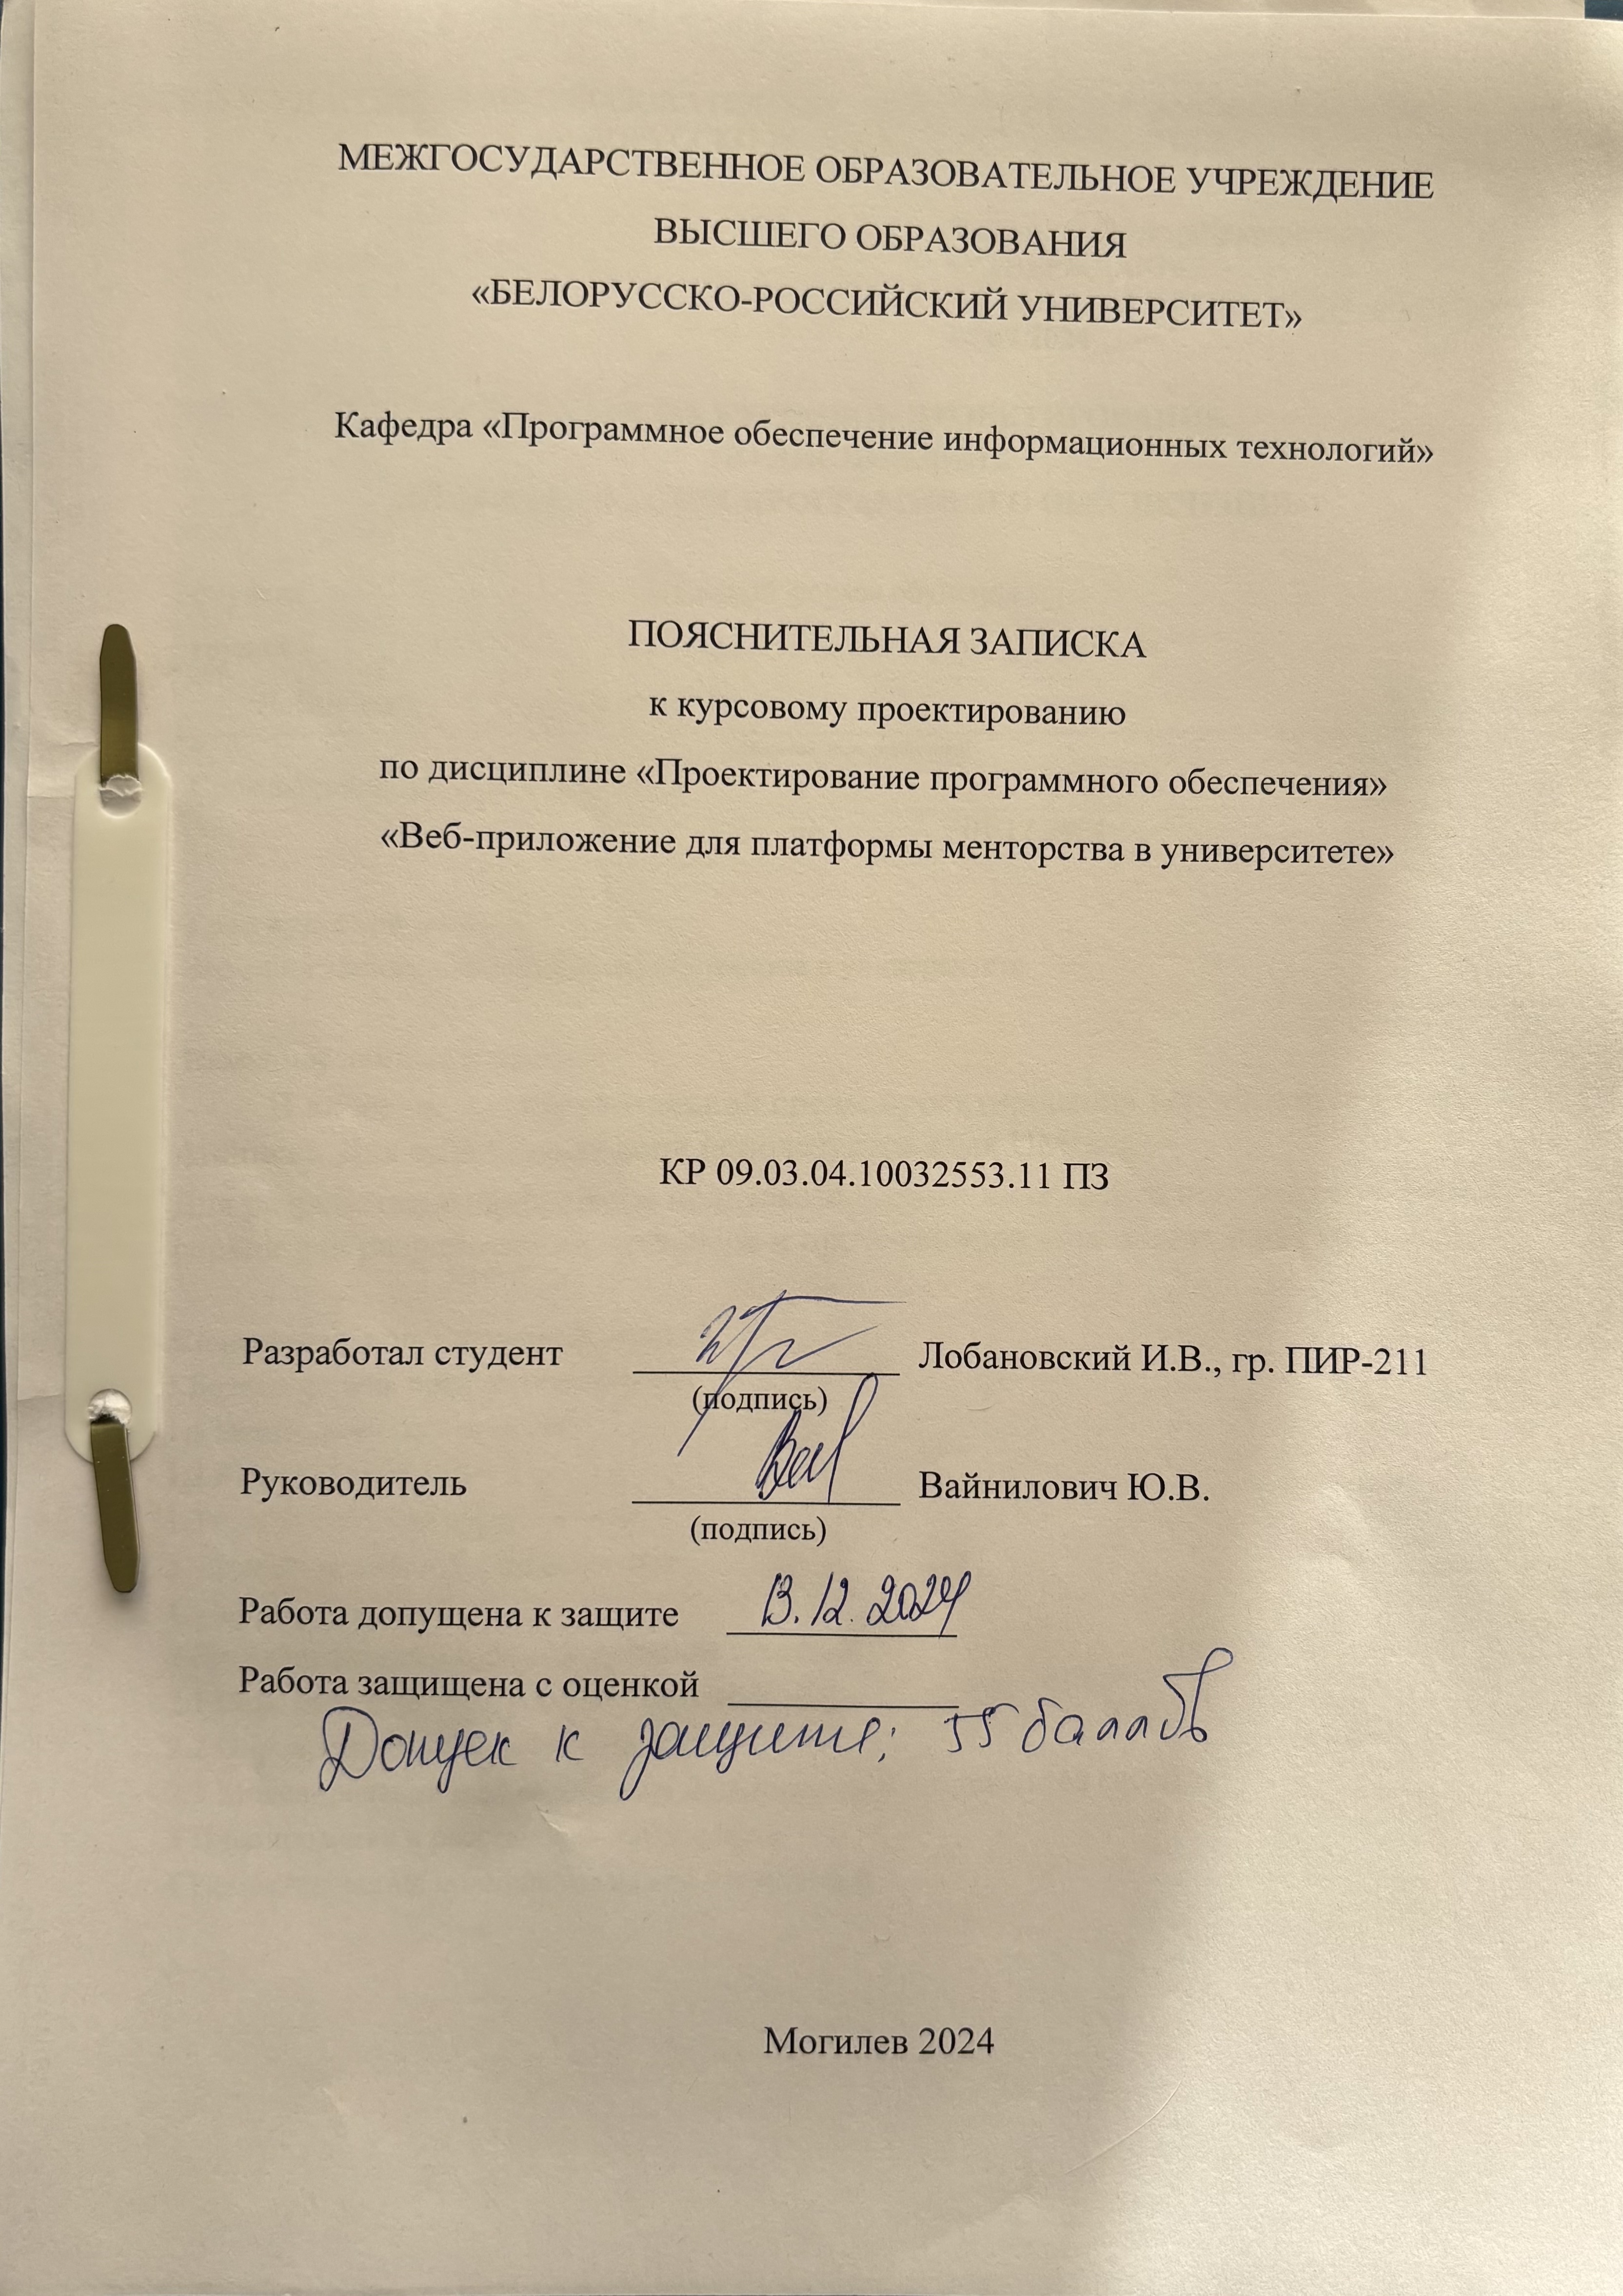 МЕЖГОСУДАРСТВЕННОЕ ОБРАЗОВАТЕЛЬНОЕ УЧРЕЖДЕНИЕ
ВЫСШЕГО ОБРАЗОВАНИЯ
«БЕЛОРУССКО-РОССИЙСКИЙ УНИВЕРСИТЕТ»
Кафедра «Программное обеспечение информационных технологий»
ПОЯСНИТЕЛЬНАЯ ЗАПИСКА
к курсовому проектированию
по дисциплине «Проектирование программного обеспечения»
«Веб-приложение для платформы менторства в университете»
КР 09.03.04.10032553.11 ПЗ
Разработал студент Лобановский И.В., гр. ПИР-211
(подпись)
Руководитель Вайнилович Ю.В.
(подпись)
Работа допущена к защите 13.12.2024
Работа защищена с оценкой
Допуск к защите: 55 баллов
Могилев 2024